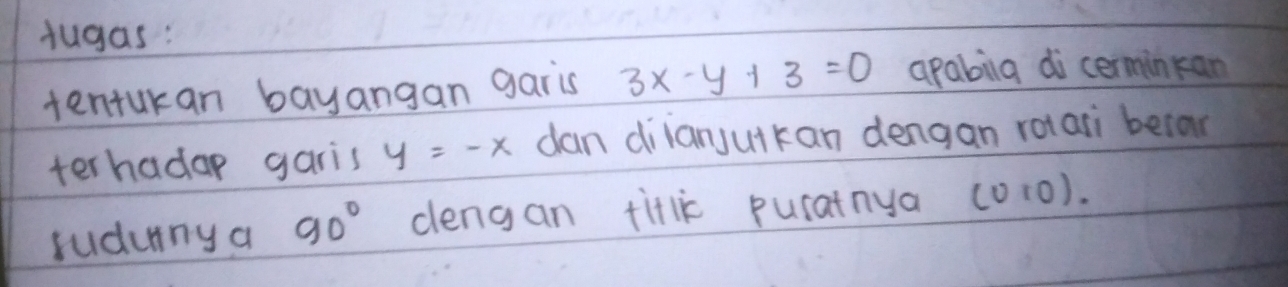 tugas :
tentukan bayangan garis 3x - y + 3 = 0 apabila di cerminkan
terhadap garis y = -x dan dilanjutkan dengan rotasi besar
sudutnya 90° dengan titik pusatnya (0,0).